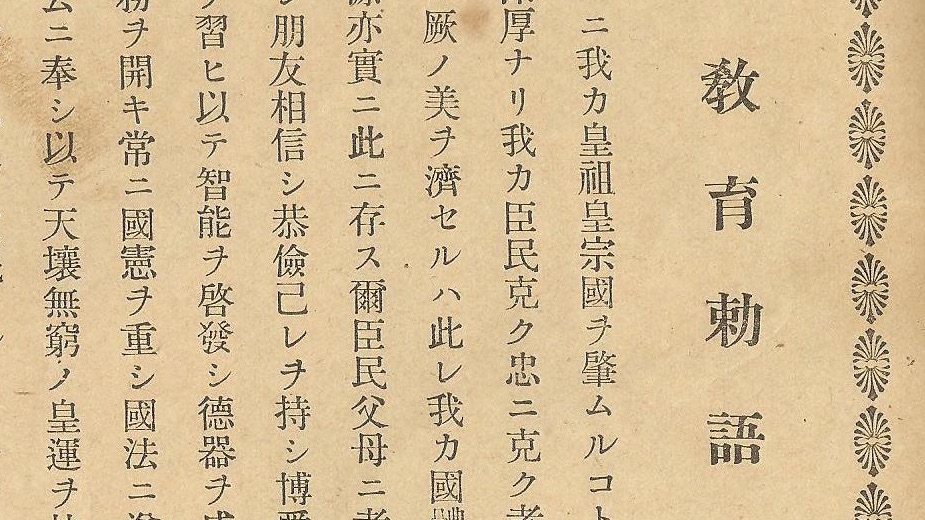 教育勅語
ニ我カ皇祖皇宗國ヲ肇ムルコト
厚ナリ我カ臣民克ク忠ニ克ク孝
厥ノ美ヲ濟セルハ此レ我カ國體
亦實ニ此ニ存ス爾臣民父母ニ孝
朋友相信シ恭儉己レヲ持シ博愛
習ヒ以テ智能ヲ啓發シ德器ヲ成
務ヲ開キ常ニ國憲ヲ重シ國法ニ
ニ奉シ以テ天壤無窮ノ皇運ヲ扶